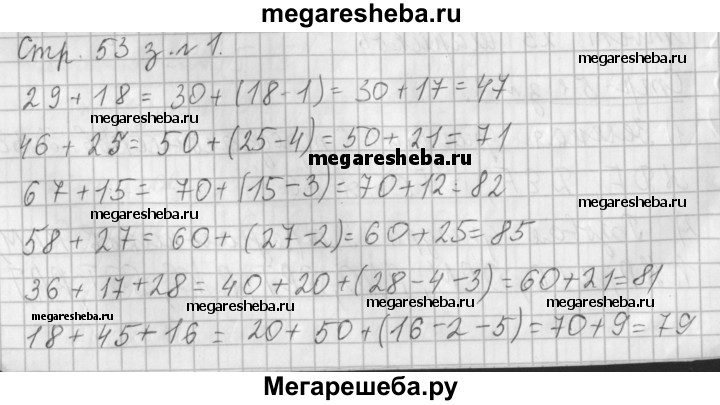 megaresheba.ru
Стр. 53 з. № 1.
megaresheba.ru
29 + 18 = 30 + (18 - 1) = 30 + 17 = 47
megaresheba.ru
46 + 25 = 50 + (25 - 4) = 50 + 21 = 71
megaresheba.ru
67 + 15 = 70 + (15 - 3) = 70 + 12 = 82
megaresheba.ru
megaresheba.ru
58 + 27 = 60 + (27 - 2) = 60 + 25 = 85
36 + 17 + 28 = 40 + 20 + (28 - 4 - 3) = 60 + 21 = 81
megaresheba.ru megaresheba.ru megaresheba.ru
megaresheba.ru
18 + 45 + 16 = 20 + 50 + (16 - 2 - 5) = 70 + 9 = 79
Мегарешеба.ру